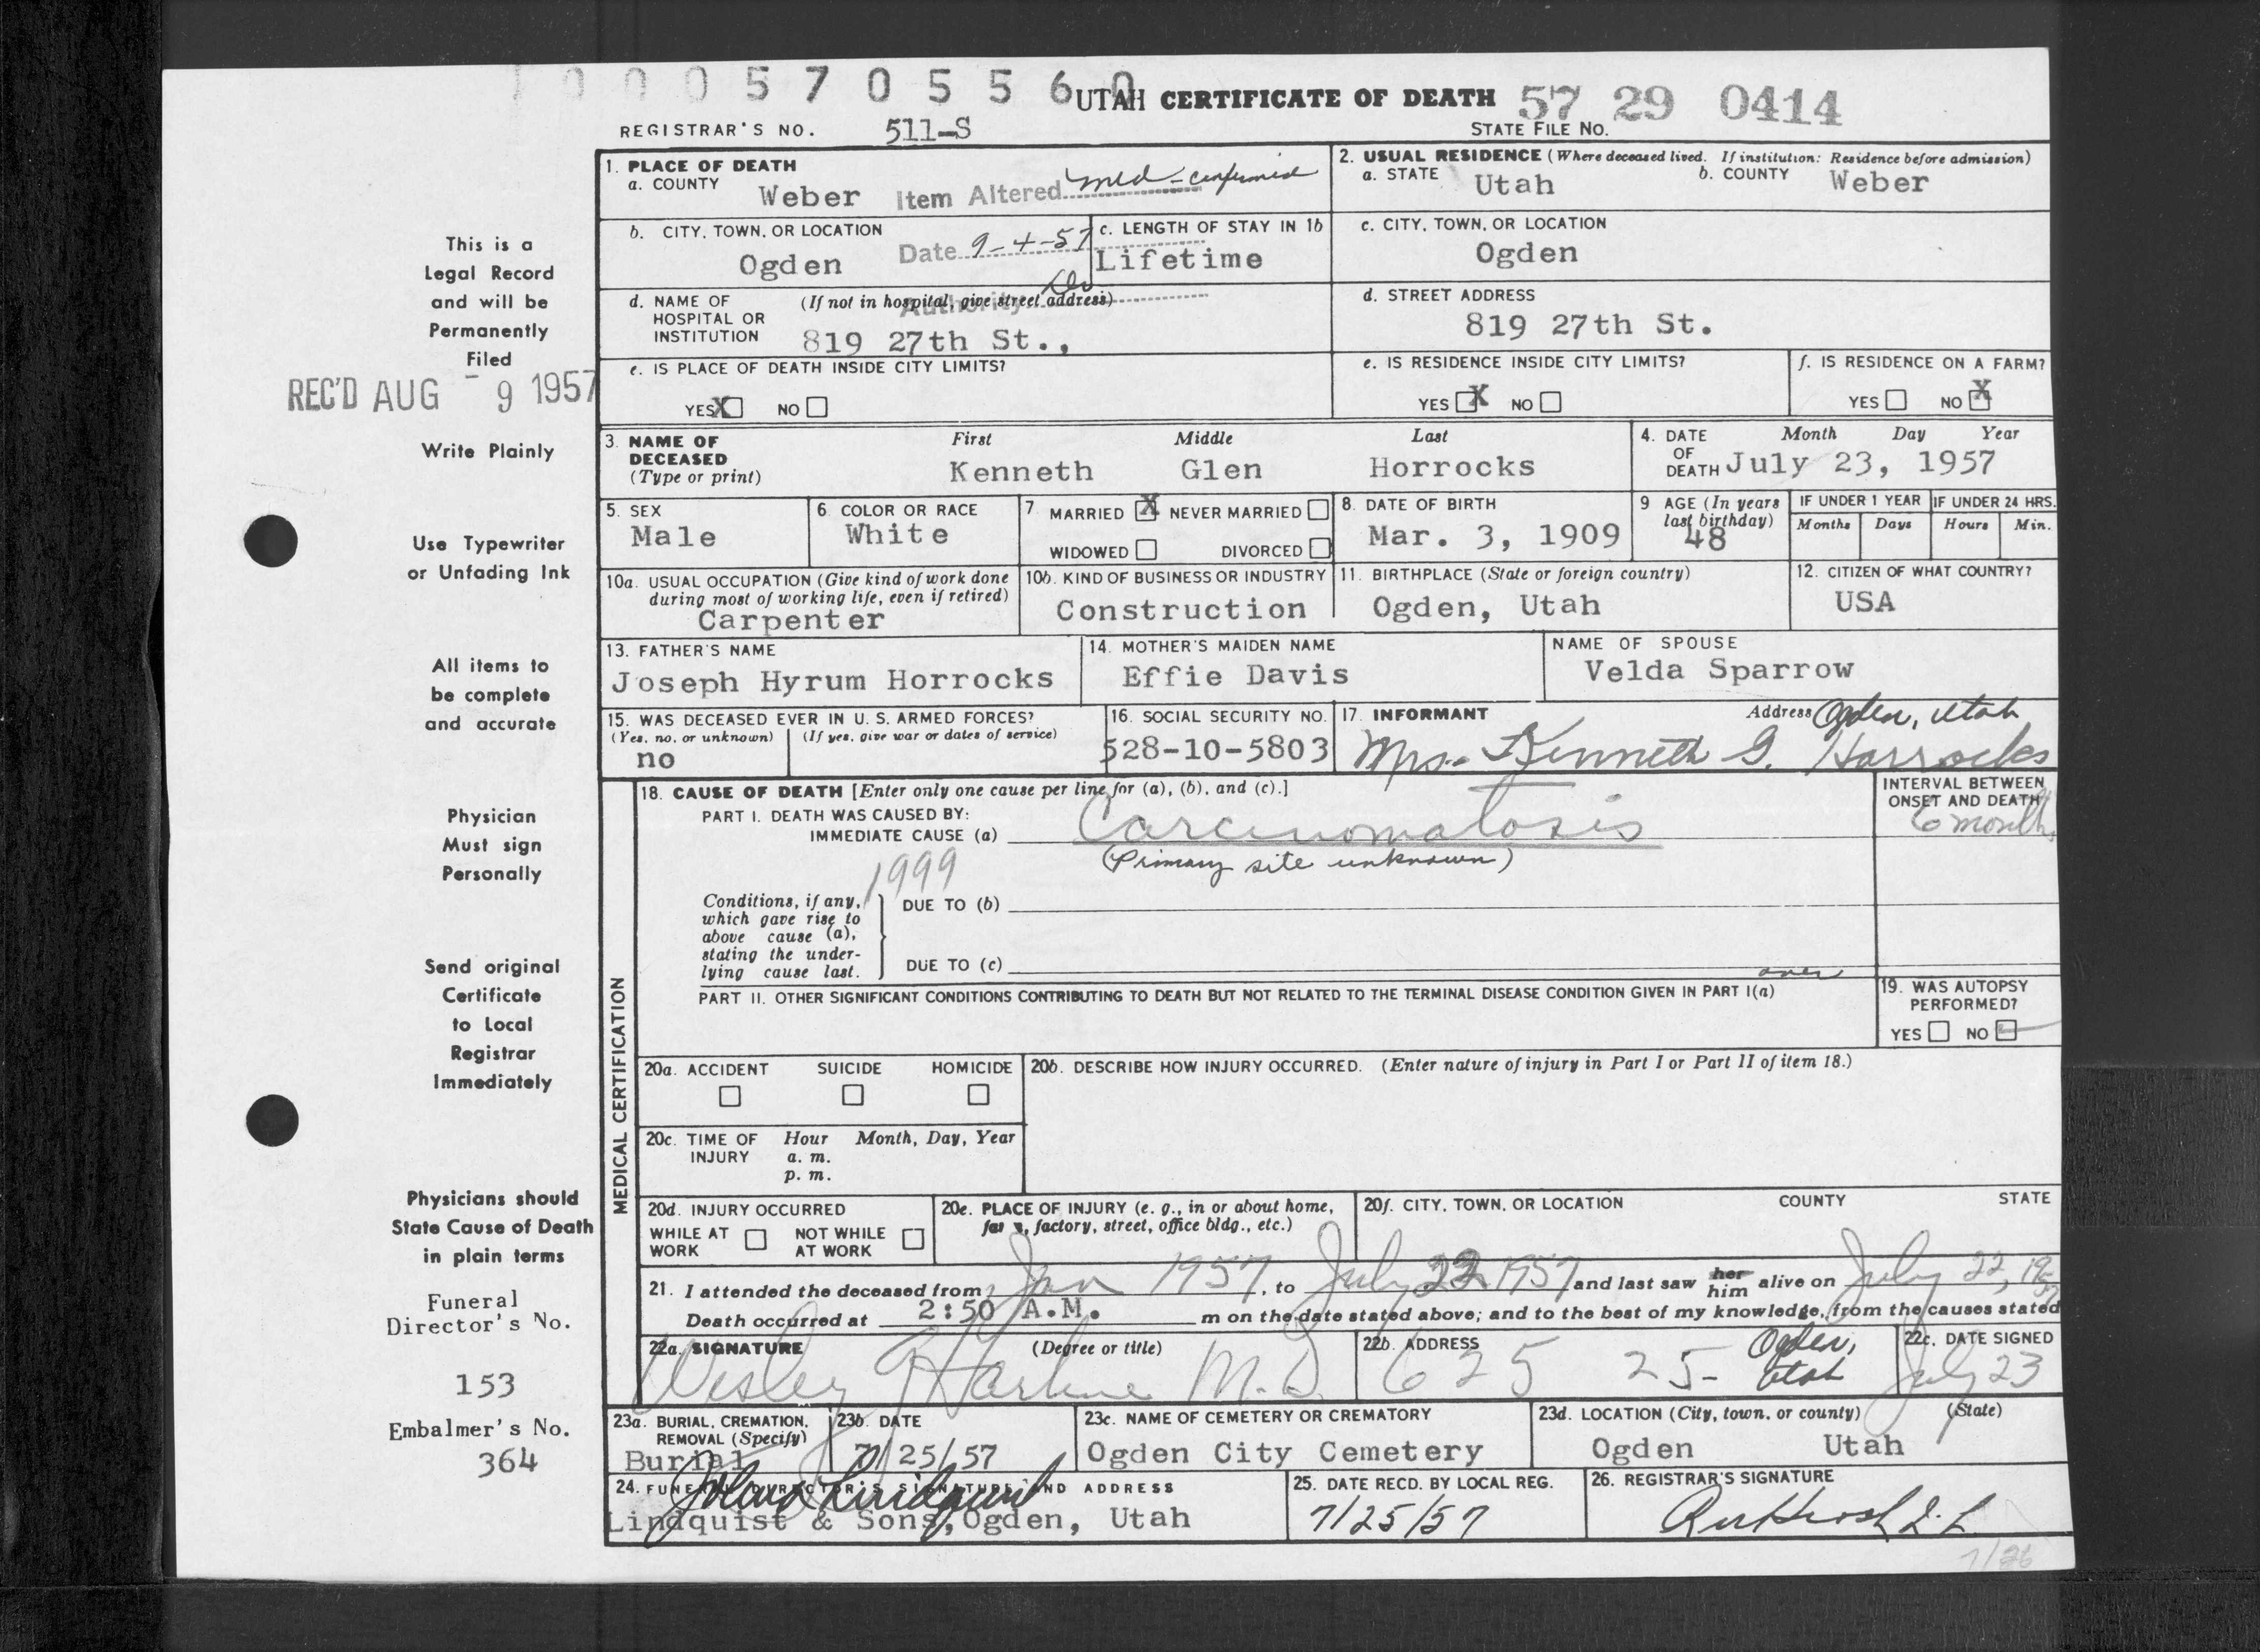 1 0 0 0 5 7 0 5 5 6 0
UTAH CERTIFICATE OF DEATH 57 29 0414
REGISTRAR'S NO. 511-S
STATE FILE No.
1. PLACE OF DEATH
a. COUNTY Weber
Item Altered med-confirmed
2. USUAL RESIDENCE (Where deceased lived. If institution: Residence before admission)
a. STATE Utah b. COUNTY Weber
b. CITY, TOWN, OR LOCATION Ogden
Date 9-4-57
c. LENGTH OF STAY IN 1b Lifetime
c. CITY, TOWN, OR LOCATION
Ogden
d. NAME OF HOSPITAL OR INSTITUTION (If not in hospital, give street address)
Authority
819 27th St.,
d. STREET ADDRESS
819 27th St.
e. IS PLACE OF DEATH INSIDE CITY LIMITS?
YES X NO
e. IS RESIDENCE INSIDE CITY LIMITS?
YES X NO
f. IS RESIDENCE ON A FARM?
YES NO X
3. NAME OF DECEASED (Type or print)
First Middle Last
Kenneth Glen Horrocks
4. DATE OF DEATH Month Day Year
July 23, 1957
5. SEX
Male
6. COLOR OR RACE
White
7. MARRIED X NEVER MARRIED
WIDOWED DIVORCED
8. DATE OF BIRTH
Mar. 3, 1909
9 AGE (In years last birthday)
48
IF UNDER 1 YEAR
Months Days
IF UNDER 24 HRS.
Hours Min.
10a. USUAL OCCUPATION (Give kind of work done during most of working life, even if retired)
Carpenter
10b. KIND OF BUSINESS OR INDUSTRY
Construction
11. BIRTHPLACE (State or foreign country)
Ogden, Utah
12. CITIZEN OF WHAT COUNTRY?
USA
13. FATHER'S NAME
Joseph Hyrum Horrocks
14. MOTHER'S MAIDEN NAME
Effie Davis
NAME OF SPOUSE
Velda Sparrow
15. WAS DECEASED EVER IN U. S. ARMED FORCES?
(Yes, no, or unknown) (If yes, give war or dates of service)
no
16. SOCIAL SECURITY NO.
528-10-5803
17. INFORMANT Address Ogden, Utah
Mrs. Kenneth G. Horrocks
MEDICAL CERTIFICATION
18. CAUSE OF DEATH [Enter only one cause per line for (a), (b), and (c).]
PART I. DEATH WAS CAUSED BY:
IMMEDIATE CAUSE (a) Carcinomatosis
(Primary site unknown)
INTERVAL BETWEEN ONSET AND DEATH
6 months
1999
Conditions, if any, which gave rise to above cause (a), stating the underlying cause last.
DUE TO (b)
DUE TO (c)
over
PART II. OTHER SIGNIFICANT CONDITIONS CONTRIBUTING TO DEATH BUT NOT RELATED TO THE TERMINAL DISEASE CONDITION GIVEN IN PART I(a)
19. WAS AUTOPSY PERFORMED?
YES NO
20a. ACCIDENT SUICIDE HOMICIDE
20b. DESCRIBE HOW INJURY OCCURRED. (Enter nature of injury in Part I or Part II of item 18.)
20c. TIME OF INJURY Hour Month, Day, Year
a. m.
p. m.
20d. INJURY OCCURRED
WHILE AT WORK NOT WHILE AT WORK
20e. PLACE OF INJURY (e. g., in or about home, farm, factory, street, office bldg., etc.)
20f. CITY, TOWN, OR LOCATION COUNTY STATE
21. I attended the deceased from Jan 1957, to July 22 1957 and last saw her him alive on July 22, 1957
Death occurred at 2:50 A.M. m on the date stated above; and to the best of my knowledge, from the causes stated
22a. SIGNATURE (Degree or title)
Wesley M.D.
22b. ADDRESS
625 25 - Ogden, Utah
22c. DATE SIGNED
July 23
23a. BURIAL, CREMATION, REMOVAL (Specify)
Burial
23b. DATE
7/25/57
23c. NAME OF CEMETERY OR CREMATORY
Ogden City Cemetery
23d. LOCATION (City, town, or county) (State)
Ogden Utah
24. FUNERAL DIRECTOR'S SIGNATURE AND ADDRESS
Lindquist
Lindquist & Sons, Ogden, Utah
25. DATE RECD. BY LOCAL REG.
7/25/57
26. REGISTRAR'S SIGNATURE
7/26
This is a
Legal Record
and will be
Permanently
Filed
REC'D AUG - 9 1957
Write Plainly
Use Typewriter
or Unfading Ink
All items to
be complete
and accurate
Physician
Must sign
Personally
Send original
Certificate
to Local
Registrar
Immediately
Physicians should
State Cause of Death
in plain terms
Funeral
Director's No.
153
Embalmer's No.
364